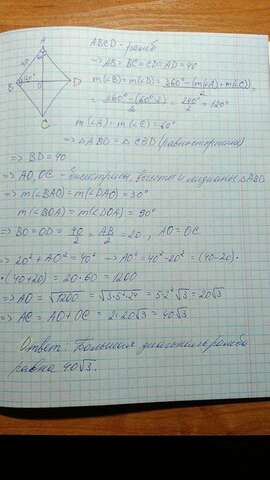 ABCD - ромб
⇒ AB = BC = CD = AD = 40
m(∠B) = m(∠D) = (360° - (m(∠A) + m(∠C)))/2 =
= (360° - (60°·2))/2 = 240°/2 = 120°
m(∠A) = m(∠C) = 60°
⇒ △ABD = △CBD (равносторонние)
⇒ BD = 40
⇒ AO, OC - биссектрисы, высоты и медианы △ABD
⇒ m(∠BAO) = m(∠DAO) = 30°
m(∠BOA) = m(∠DOA) = 90°
⇒ BO = OD = 40/2 = AB/2 = 20, AO = OC
⇒ 20² + AO² = 40² ⇒ AO² = 40² - 20² = (40-20)·
·(40+20) = 20·60 = 1200
⇒ AO = √1200 = √(3·5²·2⁴) = 5·2²√3 = 20√3
⇒ AC = AO + OC = 2·20√3 = 40√3
Ответ: Большая диагональ ромба
равна 40√3.
A
40
B
O
D
C